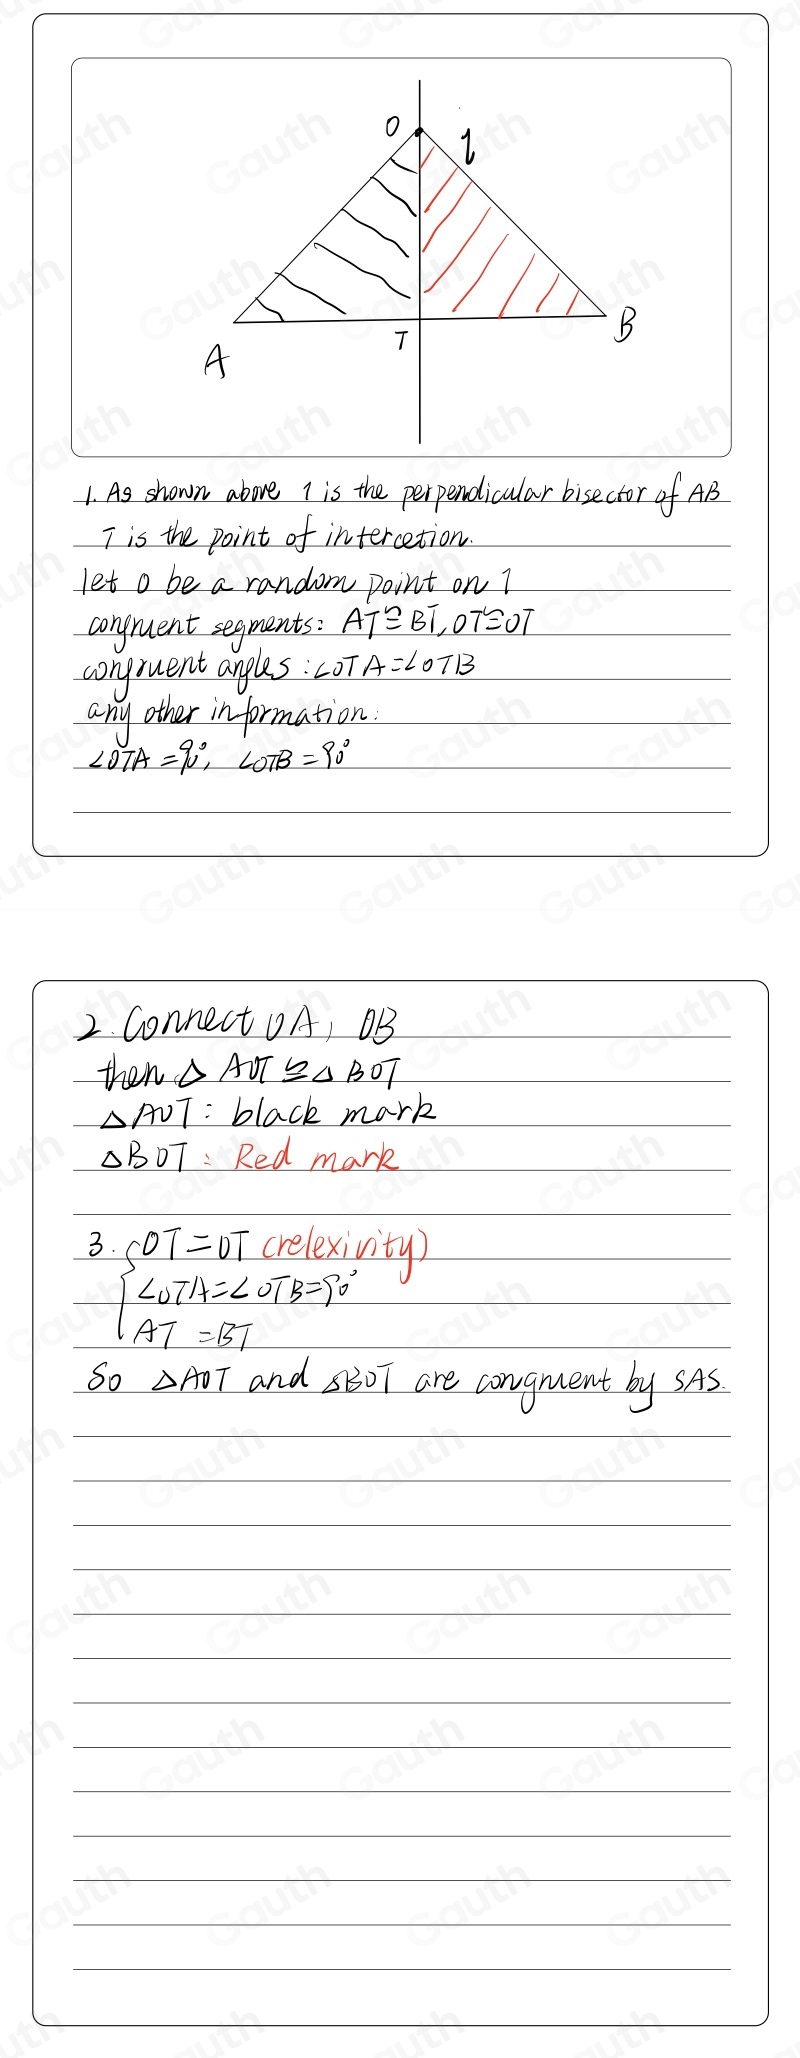 O
l
A
T
B
1. As shown above l is the perpendicular bisector of AB
T is the point of intercetion.
let O be a random point on l
congruent segments: AT≅BT, OT≅OT
congruent angles: ∠OTA=∠OTB
any other information:
∠OTA=90°, ∠OTB=90°
2. Connect OA, OB
then △AOT≅△BOT
△AOT: black mark
△BOT: Red mark
3. { OT=OT (relexivity)
∠OTA=∠OTB=90°
AT=BT
So △AOT and △BOT are congruent by SAS.
Gauth